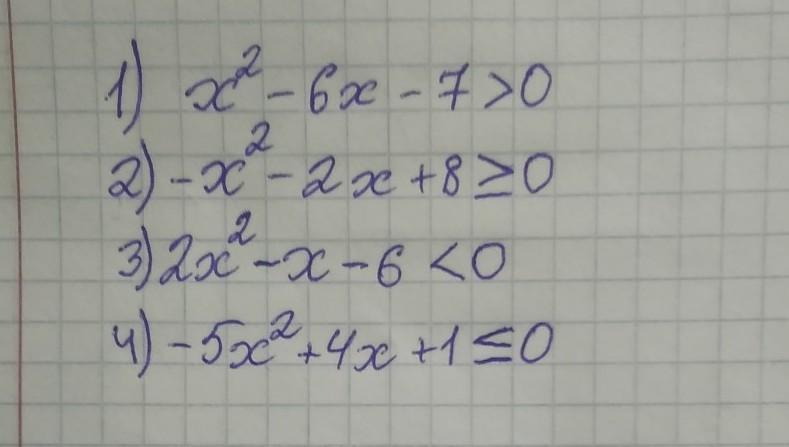 1) x² - 6x - 7 > 0
2) -x² - 2x + 8 ≥ 0
3) 2x² - x - 6 < 0
4) -5x² + 4x + 1 ≤ 0